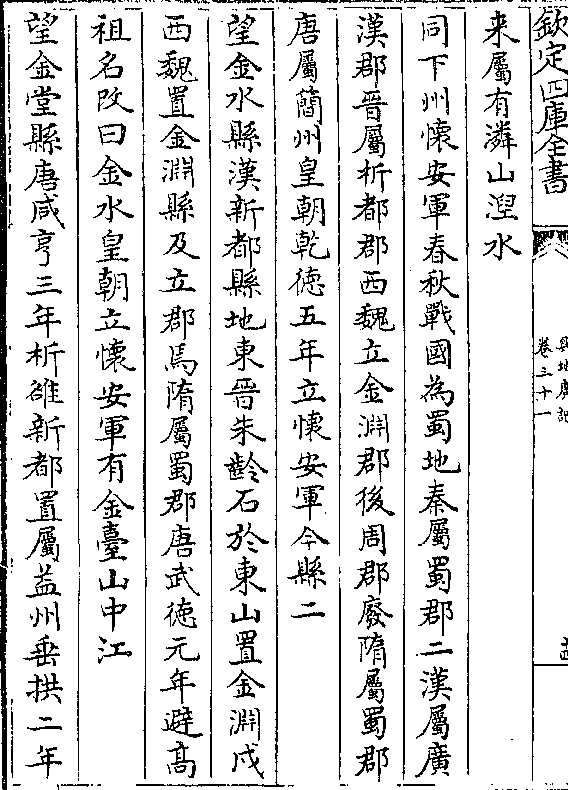 欽定四庫全書
輿地廣記
卷三十一
來屬有潾山湼水
同下州懷安軍春秋戰國為蜀地秦屬蜀郡二漢屬廣
漢郡晉屬析都郡西魏立金淵郡後周郡廢隋屬蜀郡
唐屬簡州皇朝乾徳五年立懷安軍今縣二
望金水縣漢新都縣地東晉朱齡石於東山置金淵戍
西魏置金淵縣及立郡焉隋屬蜀郡唐武徳元年避髙
祖名改曰金水皇朝立懷安軍有金臺山中江
望金堂縣唐咸亨三年析雒新都置屬益州垂拱二年